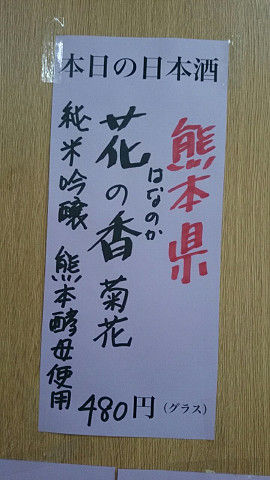 本日の日本酒
熊本県
花の香 菊花
はなのか
純米吟醸 熊本酵母使用
480円(グラス)